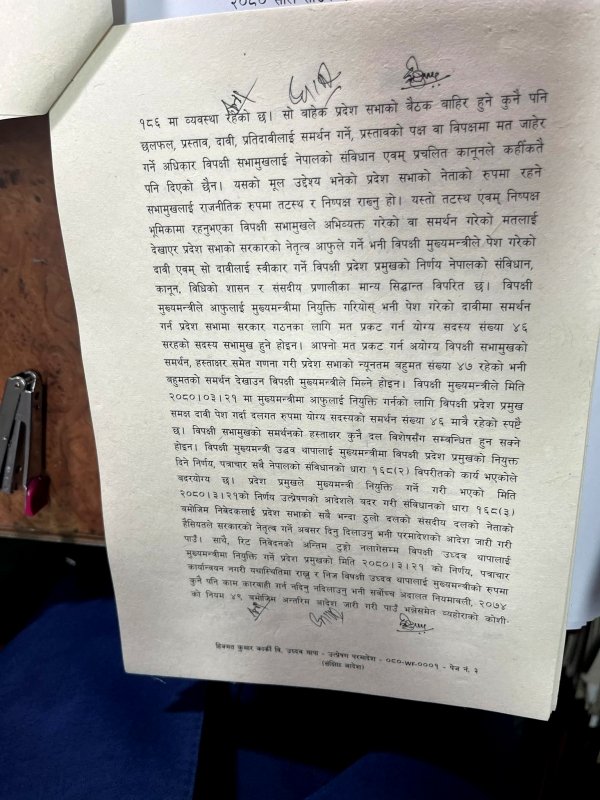 २०८० साल साउन
१८६ मा व्यवस्था रहेको छ। सो बाहेक प्रदेश सभाको बैठक बाहिर हुने कुनै पनि
छलफल, प्रस्ताव, दावी, प्रतिदावीलाई समर्थन गर्ने, प्रस्तावको पक्ष वा विपक्षमा मत जाहेर
गर्ने अधिकार विपक्षी सभामुखलाई नेपालको संविधान एवम् प्रचलित कानूनले कहींकतै
पनि दिएको छैन। यसको मूल उद्देश्य भनेको प्रदेश सभाको नेताको रुपमा रहने
सभामुखलाई राजनीतिक रुपमा तटस्थ र निष्पक्ष राख्नु हो। यस्तो तटस्थ एवम् निष्पक्ष
भूमिकामा रहनुभएका विपक्षी सभामुखले अभिव्यक्त गरेको वा समर्थन गरेको मतलाई
देखाएर प्रदेश सभाको सरकारको नेतृत्व आफुले गर्ने भनी विपक्षी मुख्यमन्त्रीले पेश गरेको
दावी एवम् सो दावीलाई स्वीकार गर्ने विपक्षी प्रदेश प्रमुखको निर्णय नेपालको संविधान,
कानून, विधिको शासन र संसदीय प्रणालीका मान्य सिद्धान्त विपरित छ। विपक्षी
मुख्यमन्त्रीले आफुलाई मुख्यमन्त्रीमा नियुक्ति गरियोस् भनी पेश गरेको दावीमा समर्थन
गर्न प्रदेश सभामा सरकार गठनका लागि मत प्रकट गर्न योग्य सदस्य संख्या ४६
सरहको सदस्य सभामुख हुने होइन। आफ्नो मत प्रकट गर्न अयोग्य विपक्षी सभामुखको
समर्थन, हस्ताक्षर समेत गणना गरी प्रदेश सभाको न्यूनतम बहुमत संख्या ४७ रहेको भनी
बहुमतको समर्थन देखाउन विपक्षी मुख्यमन्त्रीले मिल्ने होइन। विपक्षी मुख्यमन्त्रीले मिति
२०८०।०३।२१ मा मुख्यमन्त्रीमा आफुलाई नियुक्ति गर्नको लागि विपक्षी प्रदेश प्रमुख
समक्ष दावी पेश गर्दा दलगत रुपमा योग्य सदस्यको समर्थन संख्या ४६ मात्रै रहेको स्पष्टै
छ। विपक्षी सभामुखको समर्थनको हस्ताक्षर कुनै दल विशेषसँग सम्बन्धित हुन सक्ने
होइन। विपक्षी मुख्यमन्त्री उद्धव थापालाई मुख्यमन्त्रीमा विपक्षी प्रदेश प्रमुखको नियुक्त
दिने निर्णय, पत्राचार सबै नेपालको संविधानको धारा १६८(२) विपरीतको कार्य भएकोले
बदरयोग्य छ। प्रदेश प्रमुखले मुख्यमन्त्री नियुक्ति गर्ने गरी भएको मिति
२०८०।३।२१को निर्णय उत्प्रेषणको आदेशले बदर गरी संविधानको धारा १६८(३)
बमोजिम निबेदकलाई प्रदेश सभाको सबै भन्दा ठूलो दलको संसदीय दलको नेताको
हैसियतले सरकारको नेतृत्व गर्ने अवसर दिनु दिलाउनु भनी परमादेशको आदेश जारी गरी
पाउँ। साथै, रिट निवेदनको अन्तिम टुङ्गो नलागेसम्म विपक्षी उध्दव थापालाई
मुख्यमन्त्रीमा नियुक्ति गर्ने प्रदेश प्रमुखको मिति २०८०।३।२१ को निर्णय, पत्राचार
कार्यान्वयन नगरी यथास्थितिमा राख्नु र निज विपक्षी उध्दव थापालाई मुख्यमन्त्रीको रुपमा
कुनै पनि काम कारबाही गर्न नदिनु नदिलाउनु भनी सर्वोच्च अदालत नियमावली, २०७४
को नियम ४९ बमोजिम अन्तरिम आदेश जारी गरी पाउँ भन्नेसमेत व्यहोराको कोशी-
हिक्मत कुमार कार्की वि. उध्दव थापा - उत्प्रेषण परमादेश - ०८०-WF-०००१ - पेज नं. ३
(संक्षिप्त आदेश)